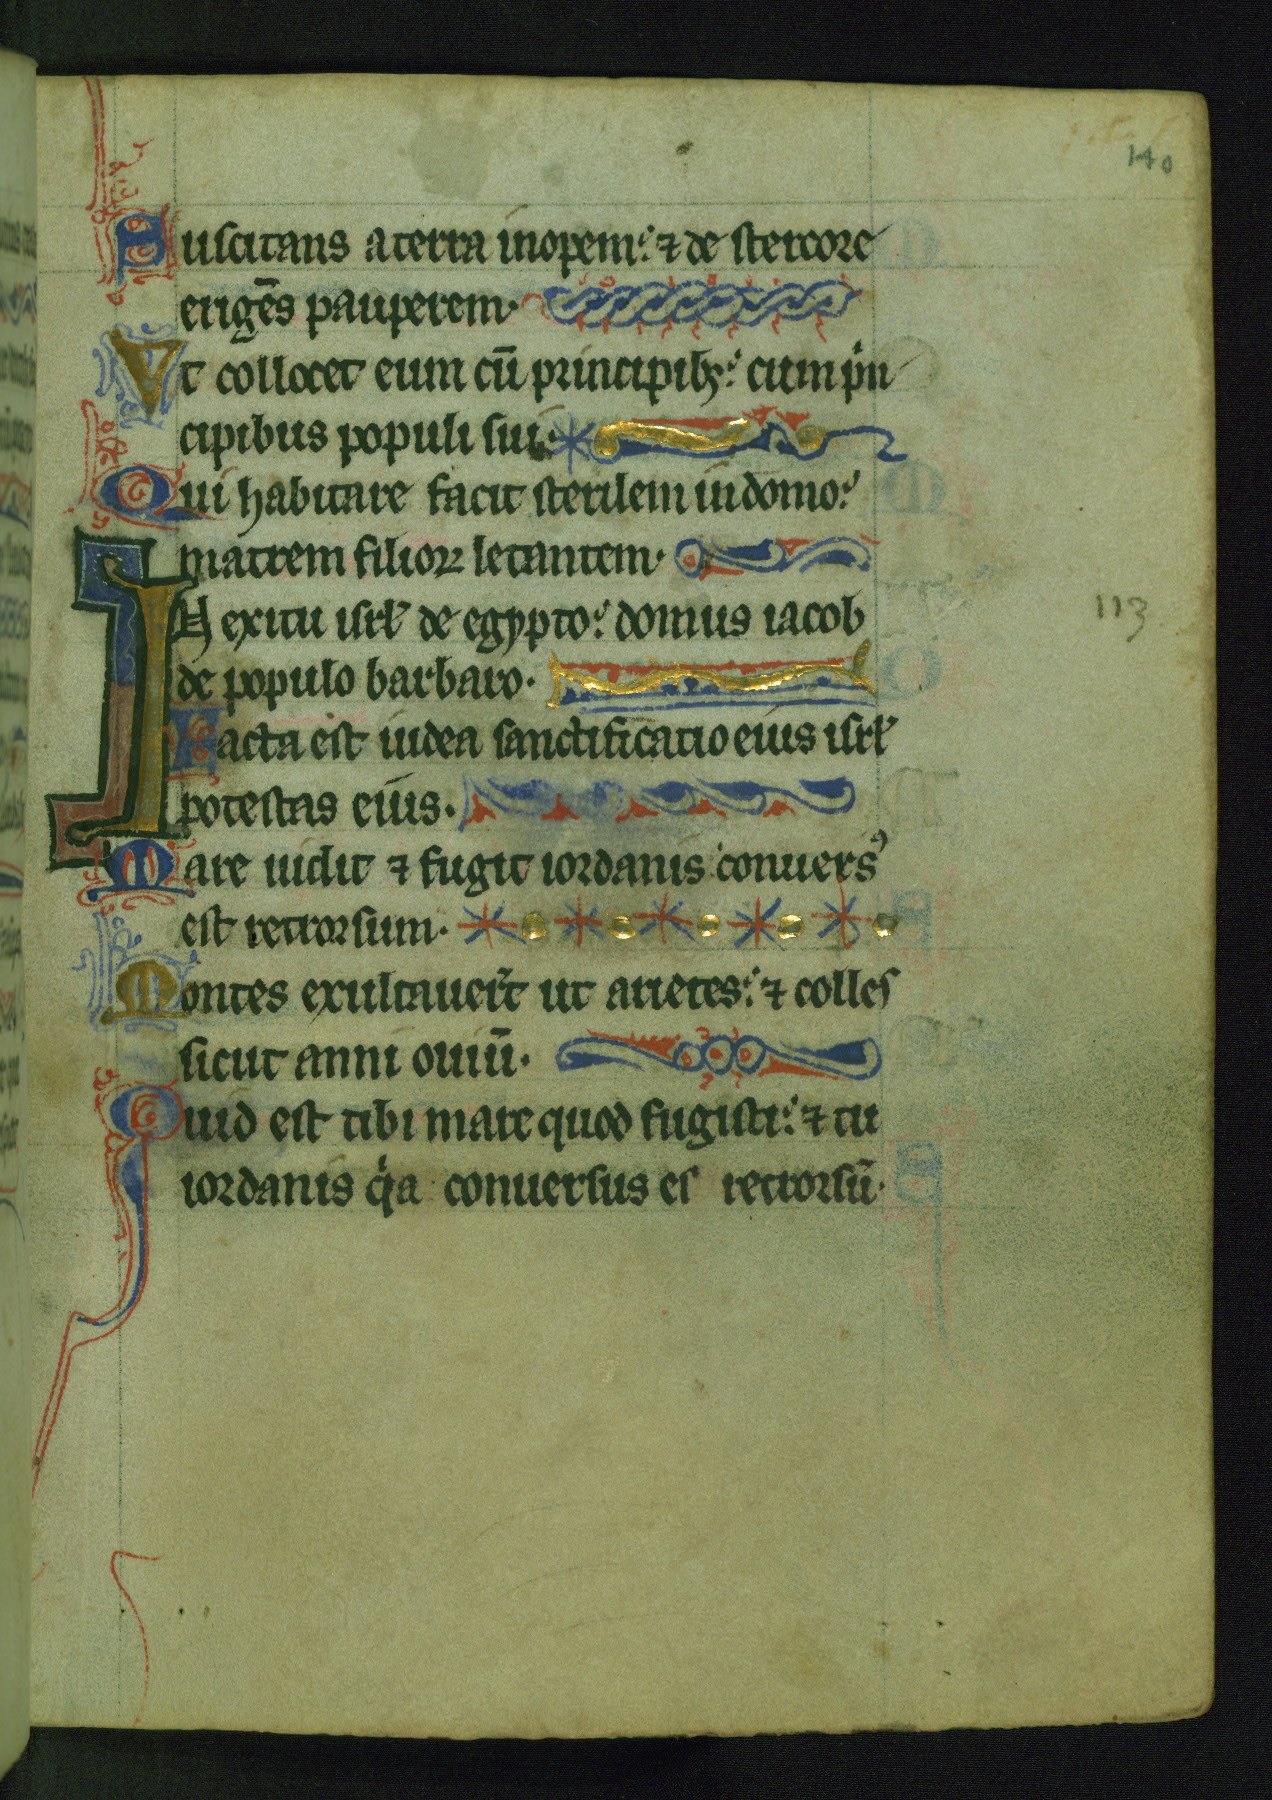 140
Suscitans a terra inopem: ⁊ de stercore
erigēs pauperem.
Vt collocet eum cū principibꝫ: cum pⁱn
cipibus populi sui.
Qui habitare facit sterilem in domo:
matrem filioꝝ letantem.
IN exitu isrł de egypto: domus iacob
de populo barbaro.
113
Facta est iudea sanctificatio eius isrł
potestas eius.
Mare uidit ⁊ fugit iordanis conuersꝰ
est retrorsum.
Montes exultauer̄t ut arietes: ⁊ colles
sicut anni ouiū.
Quid est tibi mare quod fugisti: ⁊ tu
iordanis qⁱa conuersus es retrorsū.